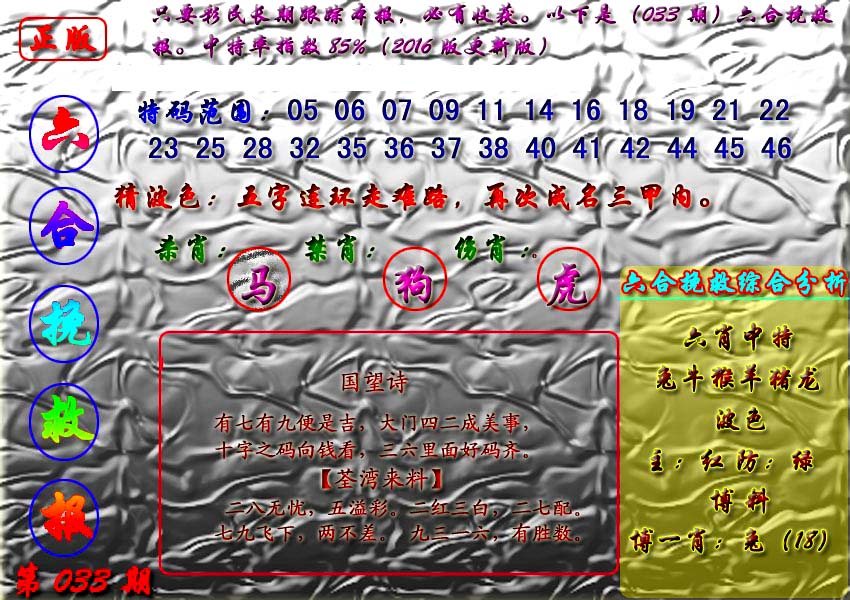 正版
只要彩民长期跟踪本报，必有收获。以下是（033 期）六合挽救
报。中特率指数 85%（2016 版更新版）
六
合
挽
救
报
第 033 期
特码范围：05 06 07 09 11 14 16 18 19 21 22
23 25 28 32 35 36 37 38 40 41 42 44 45 46
猜波色：五字连环走难路，再次成名三甲内。
杀肖：马 禁肖：狗 伤肖：虎
国望诗
有七有九便是吉，大门四二成美事，
十字之码向钱看，三六里面好码齐。
【荃湾来料】
二八无忧，五溢彩。二红三白，二七配。
七九飞下，两不差。 九三一六，有胜数。
六合挽救综合分析
六肖中特
兔牛猴羊猪龙
波色
主：红 防：绿
博料
博一肖：兔（18）